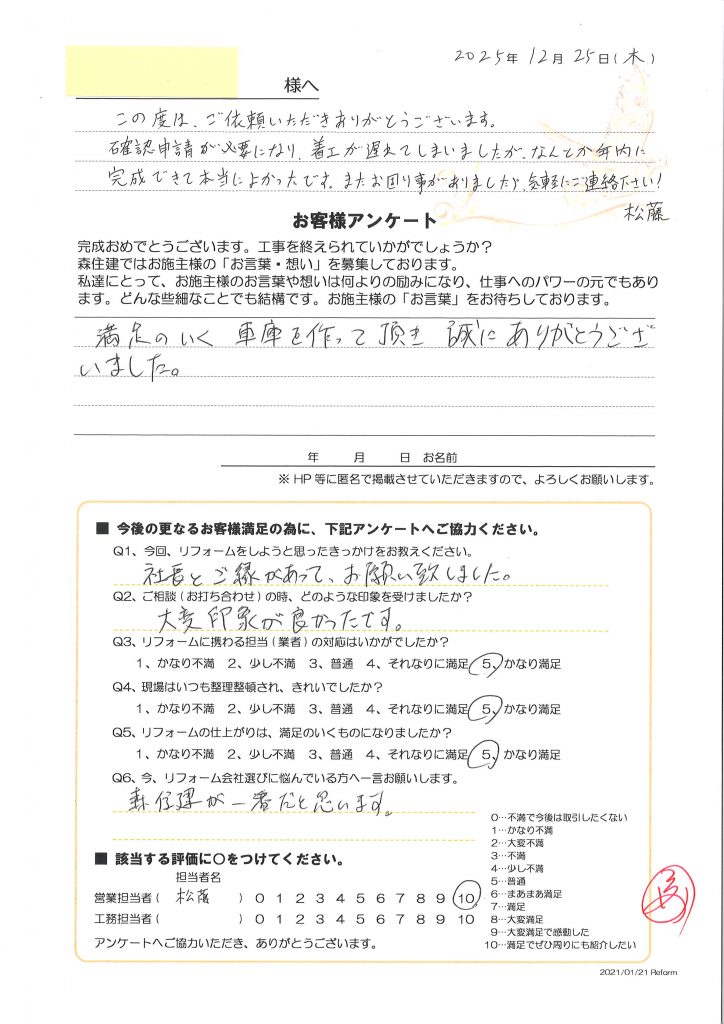 2025年 12月 25日(木)
様へ
この度は、ご依頼いただきありがとうございます。
確認申請が必要になり、着工が遅れてしまいましたが、なんとか年内に
完成できて本当によかったです。またお困り事がありましたら、気軽にご連絡下さい!
松藤
お客様アンケート
完成おめでとうございます。工事を終えられていかがでしょうか?
森住建ではお施主様の「お言葉・想い」を募集しております。
私達にとって、お施主様のお言葉や想いは何よりの励みになり、仕事へのパワーの元でもあり
ます。どんな些細なことでも結構です。お施主様の「お言葉」をお待ちしております。
満足のいく 車庫を作って頂き 誠にありがとうござ
いました。
年 月 日 お名前
※HP等に匿名で掲載させていただきますので、よろしくお願いします。
■ 今後の更なるお客様満足の為に、下記アンケートへご協力ください。
Q1、今回、リフォームをしようと思ったきっかけをお教えください。
社長とご縁があって、お願い致しました。
Q2、ご相談(お打ち合わせ)の時、どのような印象を受けましたか?
大変印象が良かったです。
Q3、リフォームに携わる担当(業者)の対応はいかがでしたか?
1、かなり不満 2、少し不満 3、普通 4、それなりに満足 5、かなり満足
Q4、現場はいつも整理整頓され、きれいでしたか?
1、かなり不満 2、少し不満 3、普通 4、それなりに満足 5、かなり満足
Q5、リフォームの仕上がりは、満足のいくものになりましたか?
1、かなり不満 2、少し不満 3、普通 4、それなりに満足 5、かなり満足
Q6、今、リフォーム会社選びに悩んでいる方へ一言お願いします。
森住建が一番だと思います。
■ 該当する評価に○をつけてください。
担当者名
営業担当者( 松藤 ) 0 1 2 3 4 5 6 7 8 9 10
工務担当者( ) 0 1 2 3 4 5 6 7 8 9 10
アンケートへご協力いただき、ありがとうございます。
0…不満で今後は取引したくない
1…かなり不満
2…大変不満
3…不満
4…少し不満
5…普通
6…まあまあ満足
7…満足
8…大変満足
9…大変満足で感動した
10…満足でぜひ周りにも紹介したい
2021/01/21 Reform